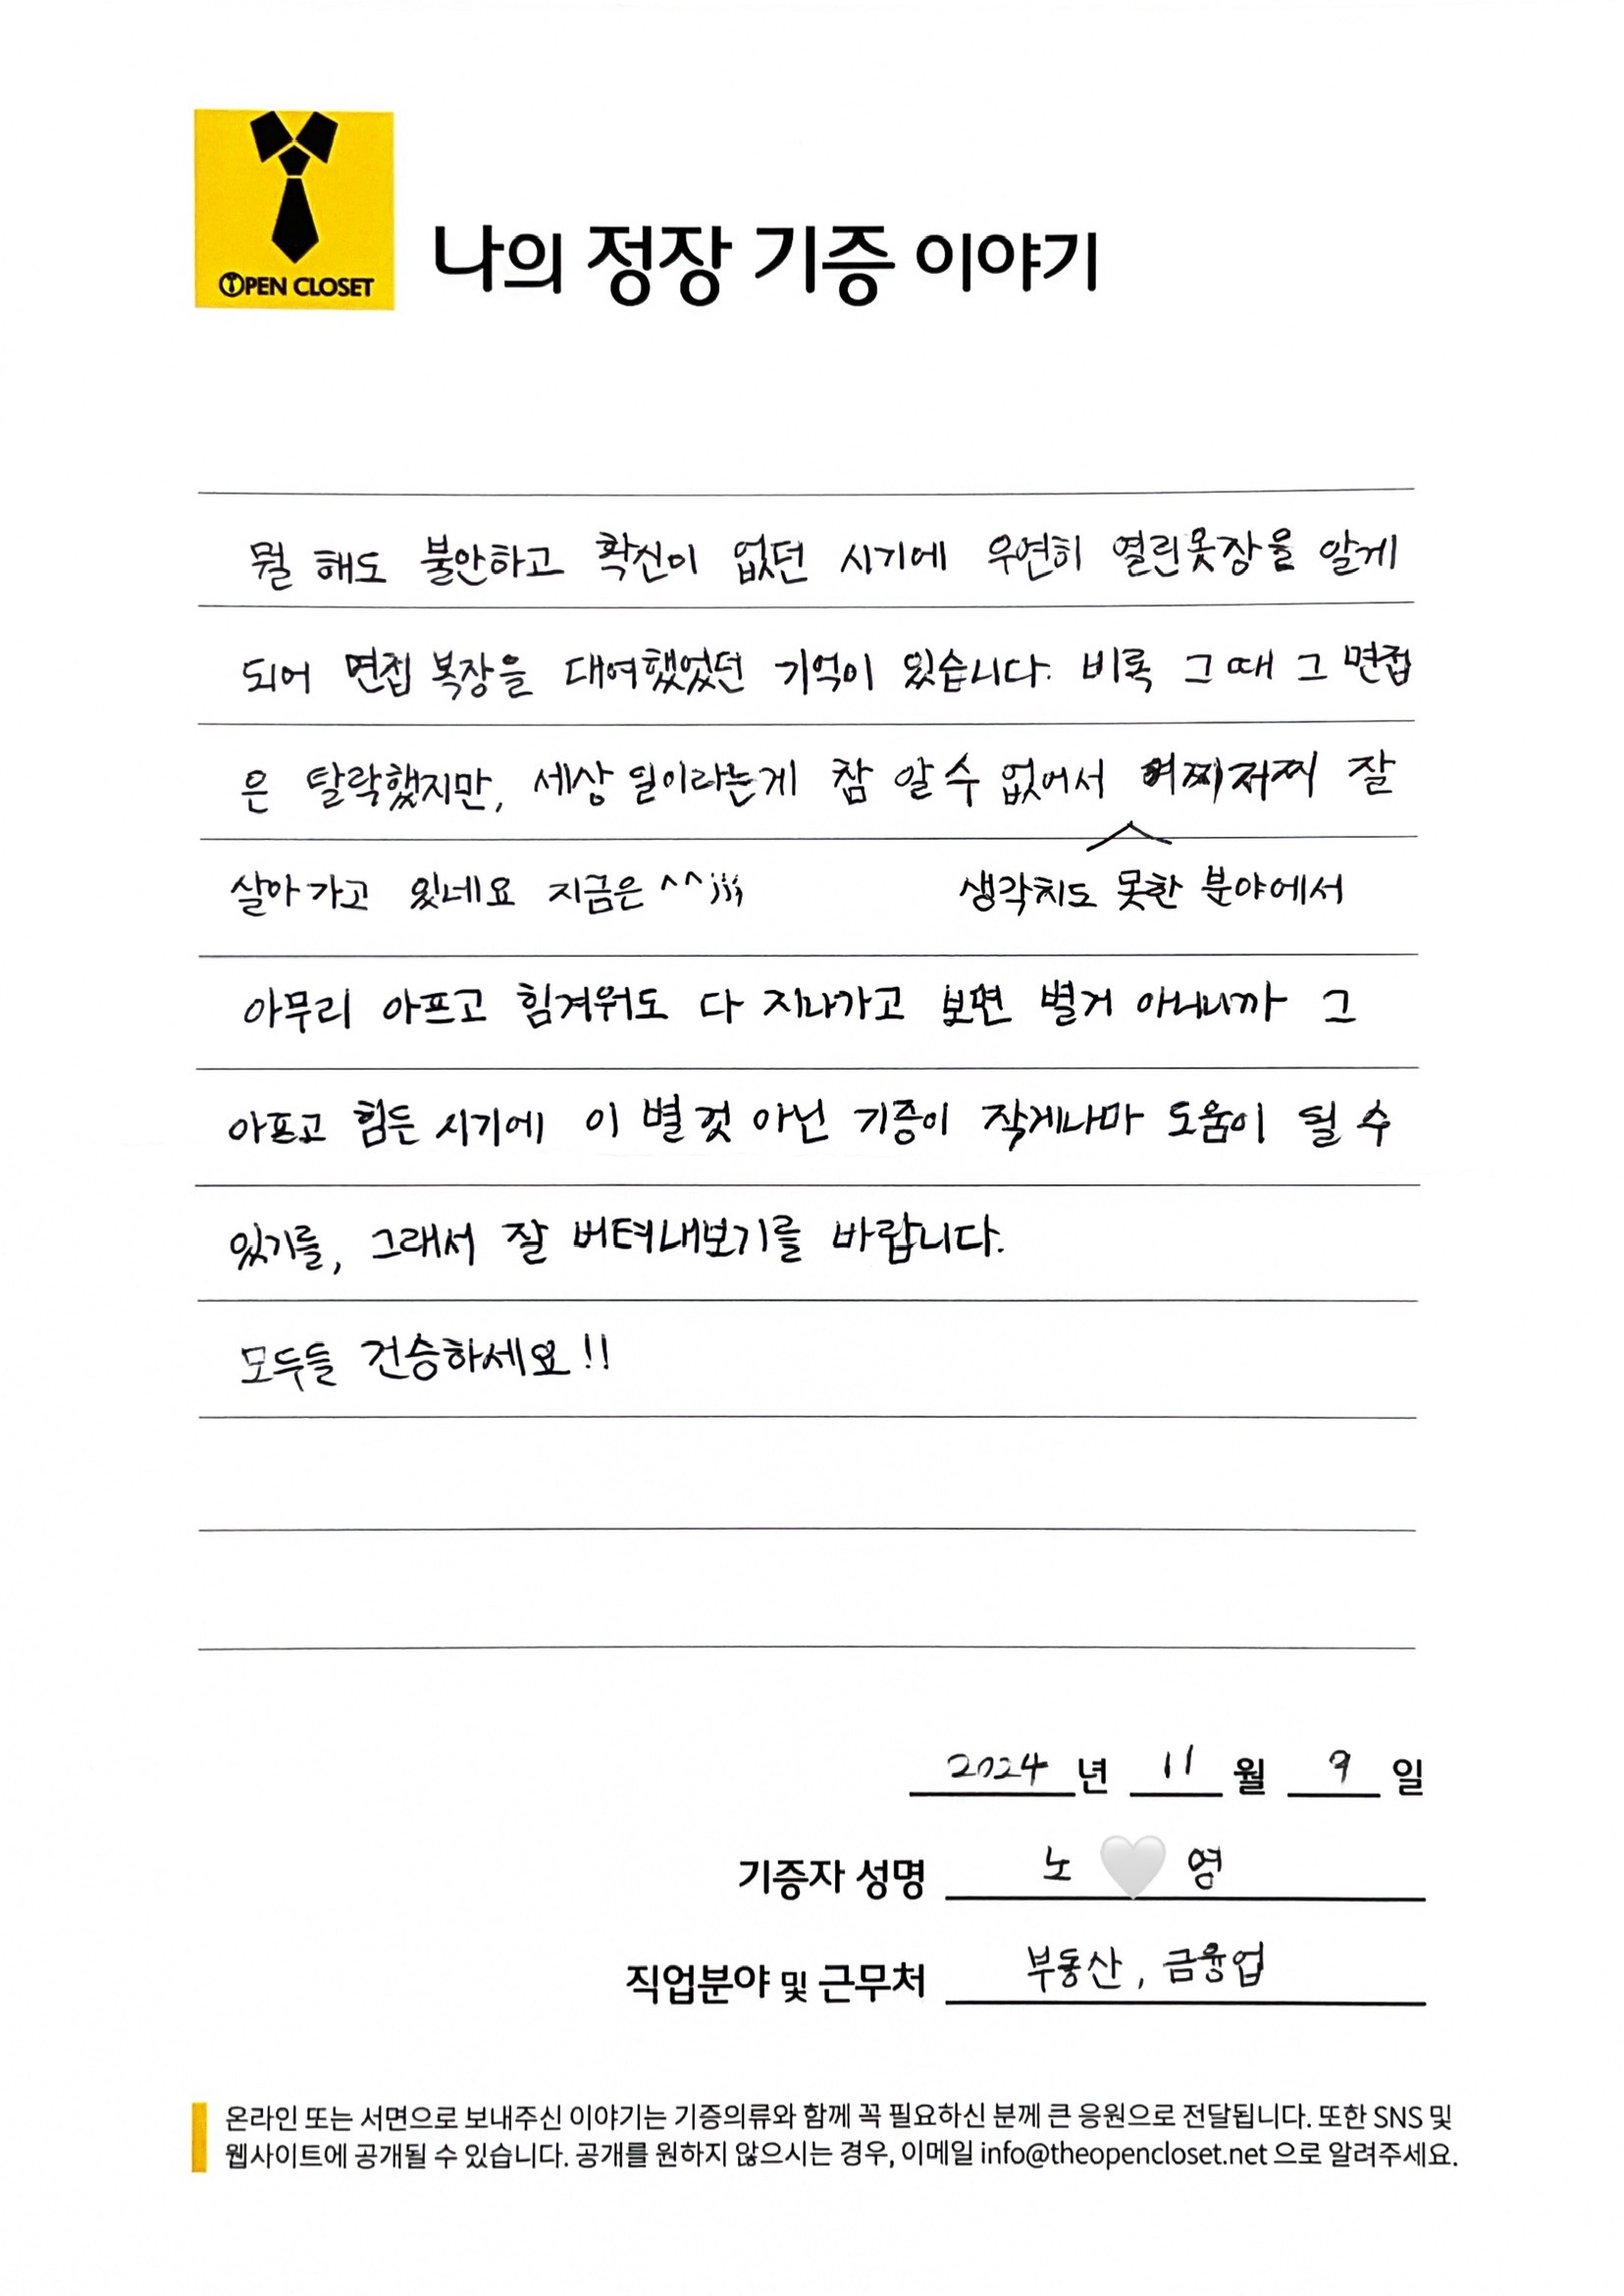 OPEN CLOSET
나의 정장 기증 이야기
뭘 해도 불안하고 확신이 없던 시기에 우연히 열린옷장을 알게
되어 면접 복장을 대여했었던 기억이 있습니다. 비록 그 때 그 면접
은 탈락했지만, 세상 일이라는게 참 알 수 없어서 어찌저찌 잘
살아가고 있네요 지금은 ^^;;; 생각치도 못한 분야에서
아무리 아프고 힘겨워도 다 지나가고 보면 별거 아니니까 그
아프고 힘든 시기에 이 별 것 아닌 기증이 작게나마 도움이 될 수
있기를, 그래서 잘 버텨내보기를 바랍니다.
모두들 건승하세요!!
2024 년 11 월 9 일
기증자 성명 노 영
직업분야 및 근무처 부동산, 금융업
온라인 또는 서면으로 보내주신 이야기는 기증의류와 함께 꼭 필요하신 분께 큰 응원으로 전달됩니다. 또한 SNS 및
웹사이트에 공개될 수 있습니다. 공개를 원하지 않으시는 경우, 이메일 info@theopencloset.net 으로 알려주세요.